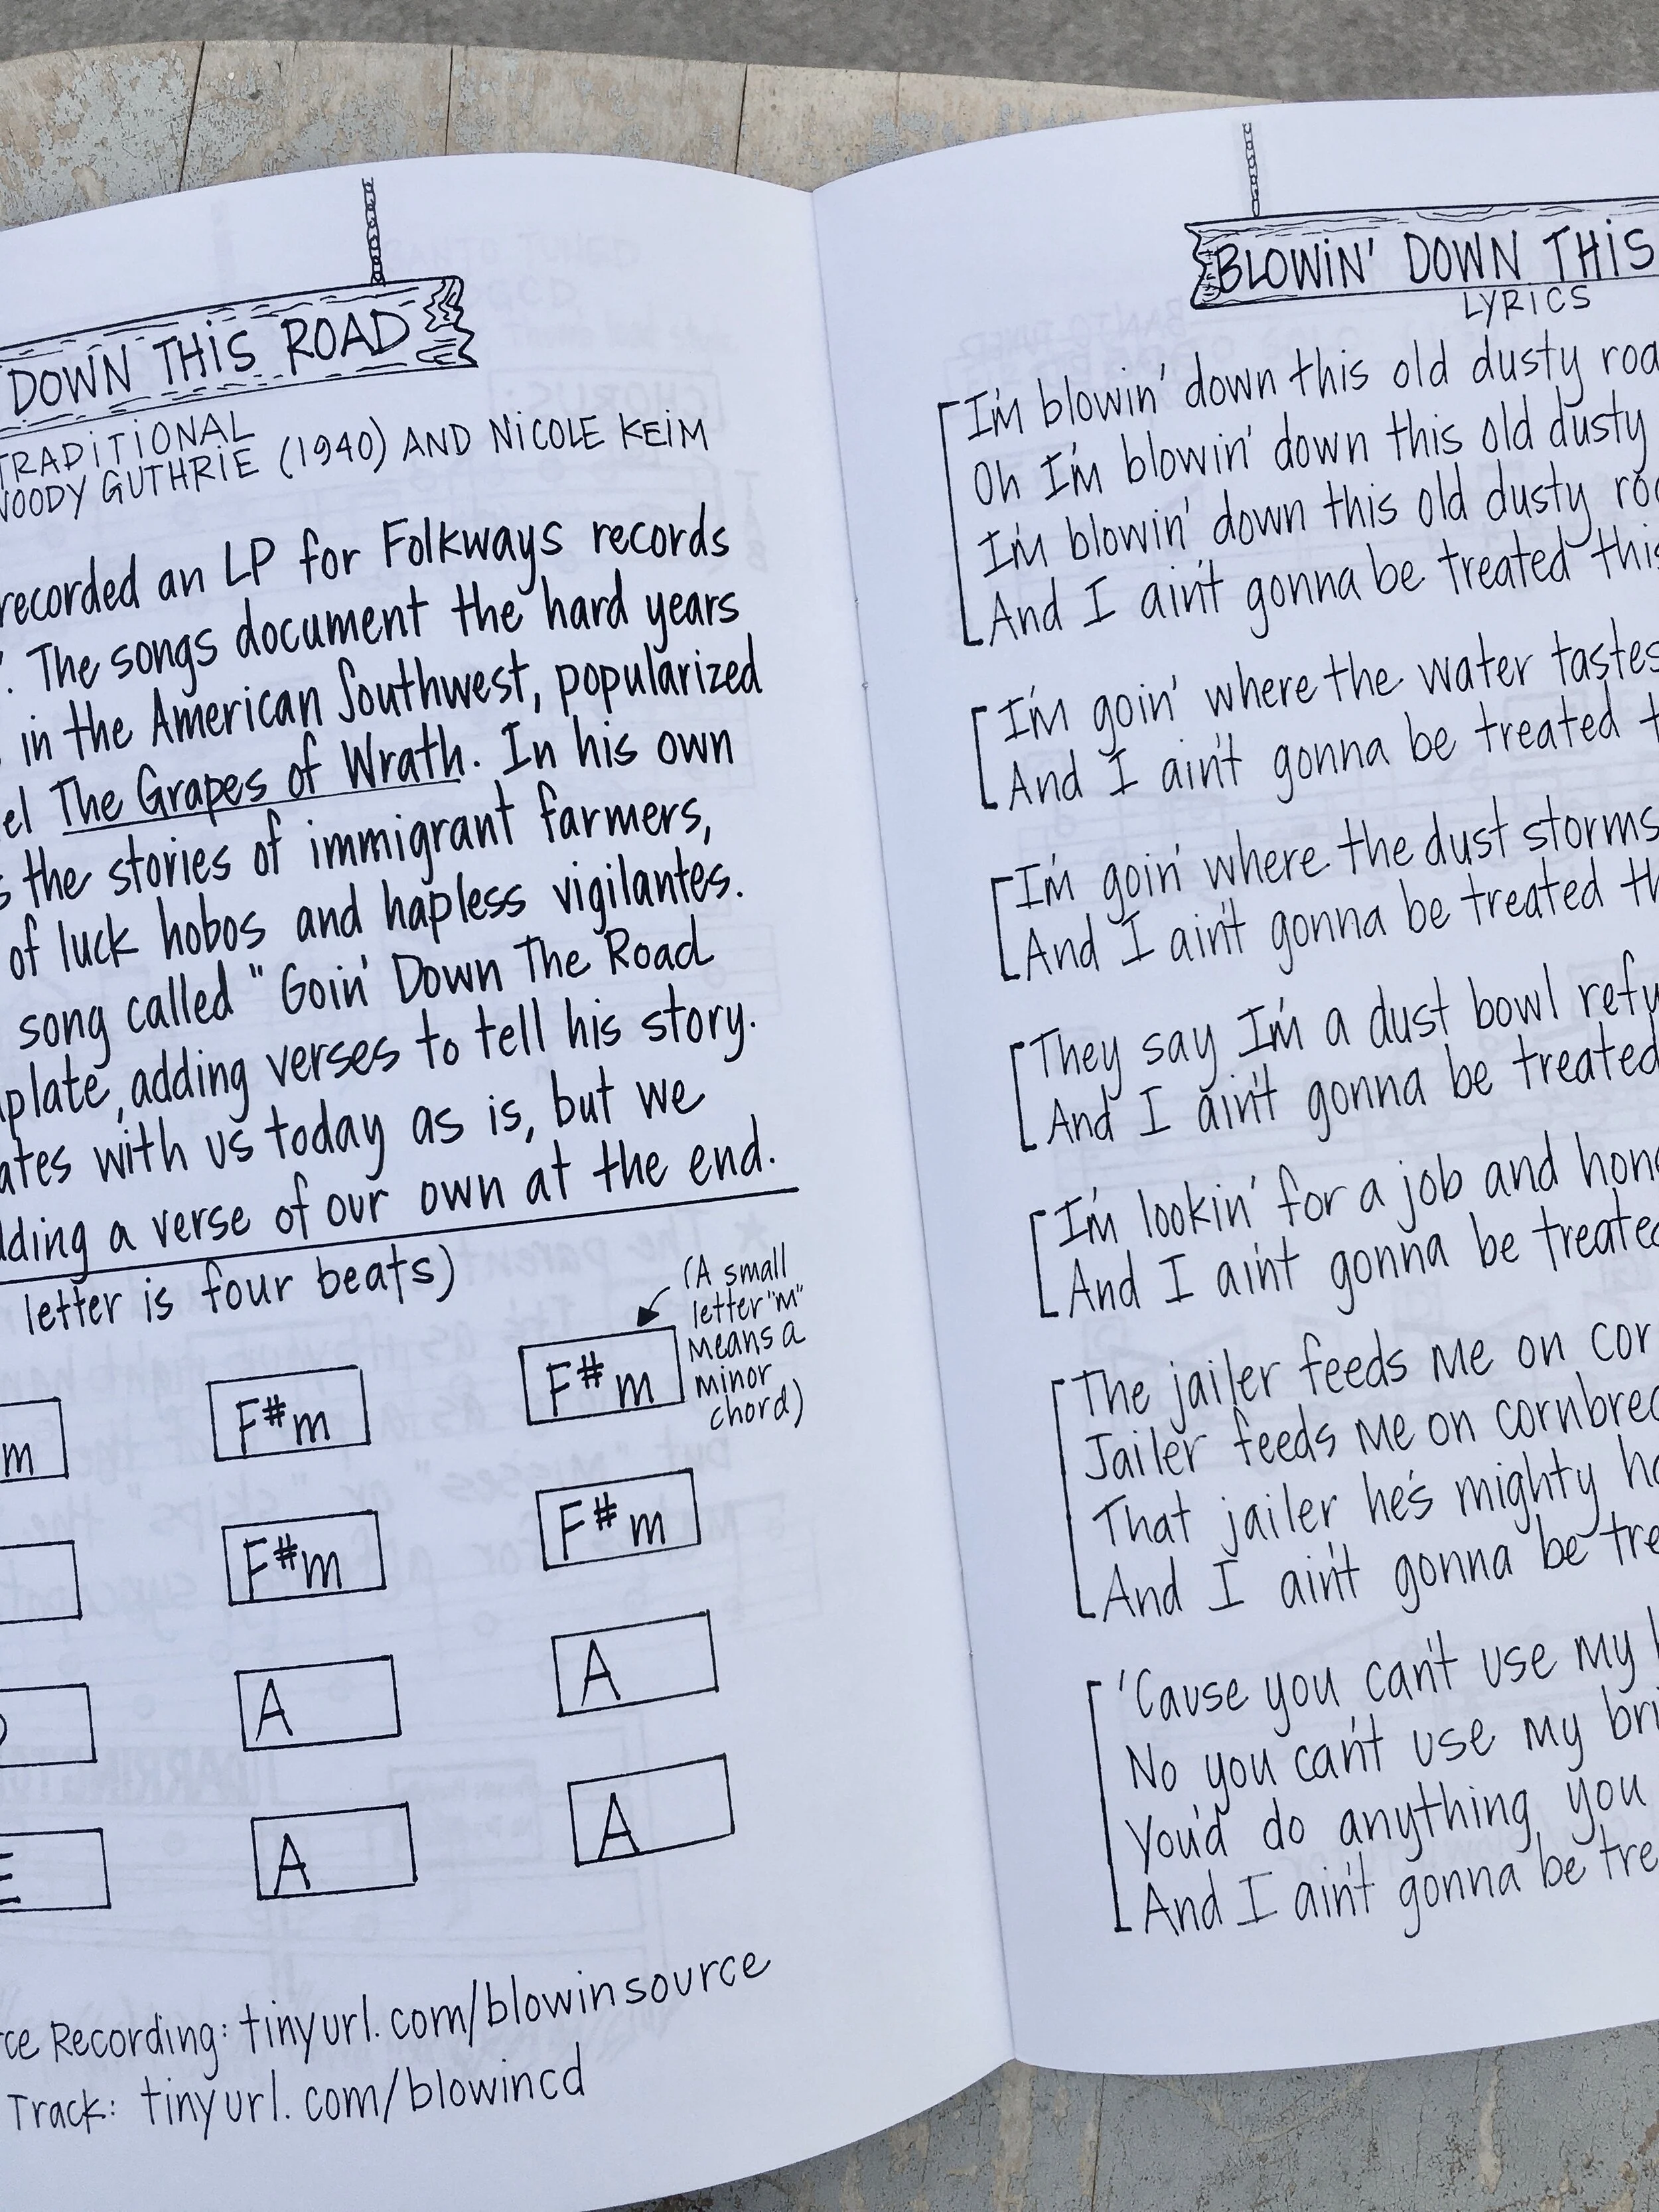 DOWN THIS ROAD
TRADITIONAL
WOODY GUTHRIE (1940) AND NICOLE KEIM
recorded an LP for Folkways records
". The songs document the hard years
in the American Southwest, popularized
el The Grapes of Wrath. In his own
s the stories of immigrant farmers,
of luck hobos and hapless vigilantes.
song called "Goin' Down The Road
plate, adding verses to tell his story.
ates with us today as is, but we
dding a verse of our own at the end.
letter is four beats)
(A small
letter "m"
means a
minor
chord)
m F#m F#m
F#m F#m
A A
E A A
rce Recording: tinyurl.com/blowinsource
Track: tinyurl.com/blowincd
BLOWIN' DOWN THIS
LYRICS
I'm blowin' down this old dusty roa
Oh I'm blowin' down this old dusty
I'm blowin' down this old dusty roa
And I ain't gonna be treated this
I'm goin' where the water tastes
And I ain't gonna be treated t
I'm goin' where the dust storms
And I ain't gonna be treated th
They say I'm a dust bowl refu
And I ain't gonna be treated
I'm lookin' for a job and hon
And I ain't gonna be treate
The jailer feeds me on cor
Jailer feeds me on cornbrea
That jailer he's mighty ha
And I ain't gonna be tre
'Cause you can't use my
No you can't use my bri
You'd do anything, you
And I ain't gonna be tre